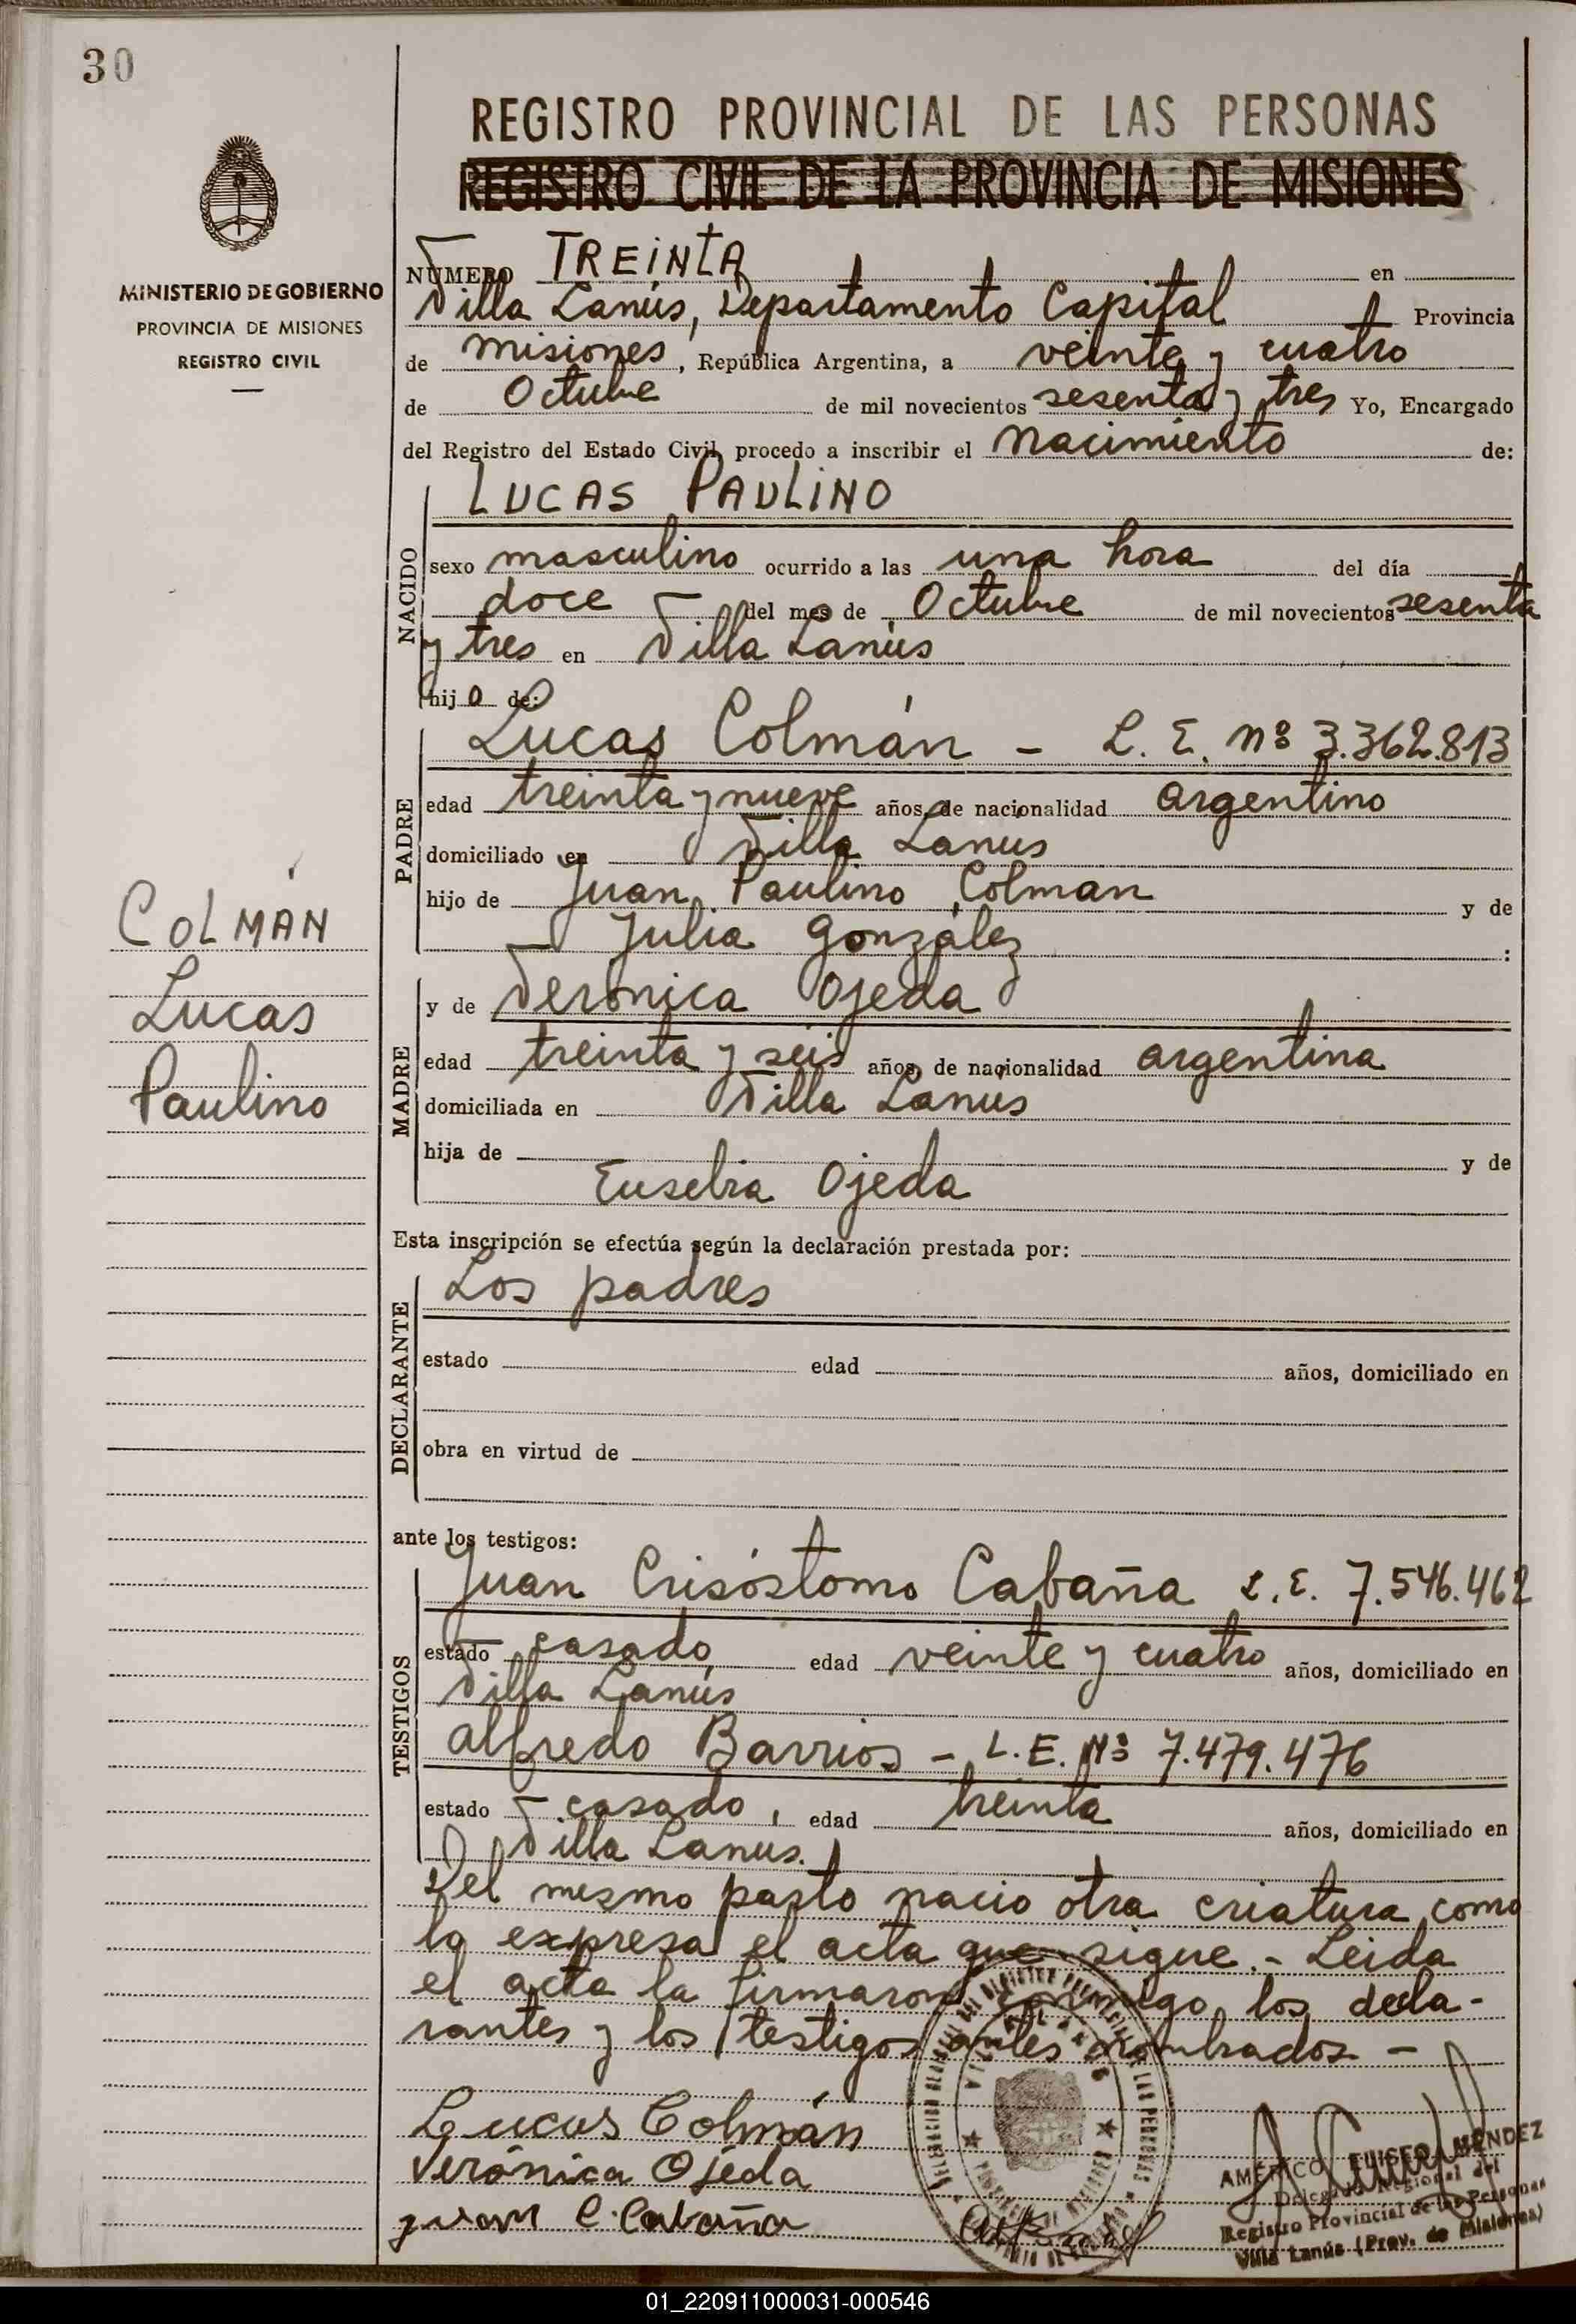 30
REGISTRO PROVINCIAL DE LAS PERSONAS
REGISTRO CIVIL DE LA PROVINCIA DE MISIONES
MINISTERIO DE GOBIERNO
PROVINCIA DE MISIONES
REGISTRO CIVIL
NUMERO TREINTA en
Villa Lanús, Departamento Capital Provincia
de misiones, República Argentina, a veinte y cuatro
de Octubre de mil novecientos sesenta y tres Yo, Encargado
del Registro del Estado Civil, procedo a inscribir el Nacimiento de:
NACIDO
LUCAS PAULINO
sexo masculino ocurrido a las una hora del día
doce del mes de Octubre de mil novecientos sesenta
y tres en Villa Lanús
hijo de:
PADRE
Lucas Colmán - L. E. nº 3.362.813
edad treinta y nueve años, de nacionalidad argentino
domiciliado en Villa Lanús
hijo de Juan Paulino Colman y de
Julia González :
COLMÁN
Lucas
Paulino
MADRE
y de Verónica Ojeda
edad treinta y seis años, de nacionalidad argentina
domiciliada en Villa Lanus
hija de y de
Eusebia Ojeda
Esta inscripción se efectúa según la declaración prestada por:
DECLARANTE
Los padres
estado edad años, domiciliado en
obra en virtud de
ante los testigos:
TESTIGOS
Juan Crisóstomo Cabaña L.E. 7.546.462
estado casado, edad veinte y cuatro años, domiciliado en
Villa Lanús
Alfredo Barrios - L.E. Nº 7.479.476
estado casado, edad treinta años, domiciliado en
Villa Lanus.
Del mesmo parto nacio otra criatura como
lo expresa el acta que sigue.- Leida
el acta la firmaron conmigo los decla-
rantes y los testigos antes nombrados -
Lucas Colmán
Verónica Ojeda
Juan C. Cabaña
AMÉRICO ELISEO MENDEZ
Delegado Regional del
Registro Provincial de las Personas
Villa Lanús (Prov. de Misiones)
01_220911000031-000546